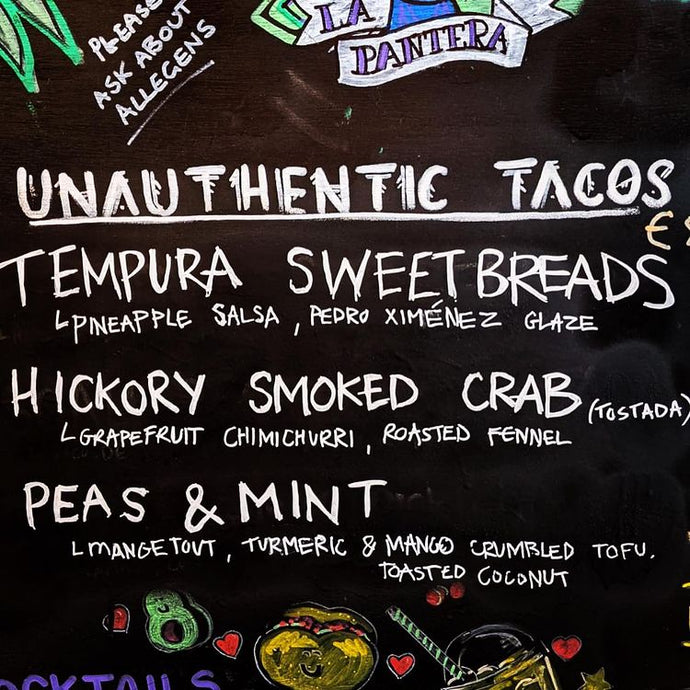 PLEASE
ASK ABOUT
ALLEGENS
LA
PANTERA
UNAUTHENTIC TACOS
€
TEMPURA SWEETBREADS
PINEAPPLE SALSA, PEDRO XIMÉNEZ GLAZE
HICKORY SMOKED CRAB (TOSTADA)
GRAPEFRUIT CHIMICHURRI, ROASTED FENNEL
PEAS & MINT
MANGETOUT, TURMERIC & MANGO CRUMBLED TOFU.
TOASTED COCONUT
COCKTAILS